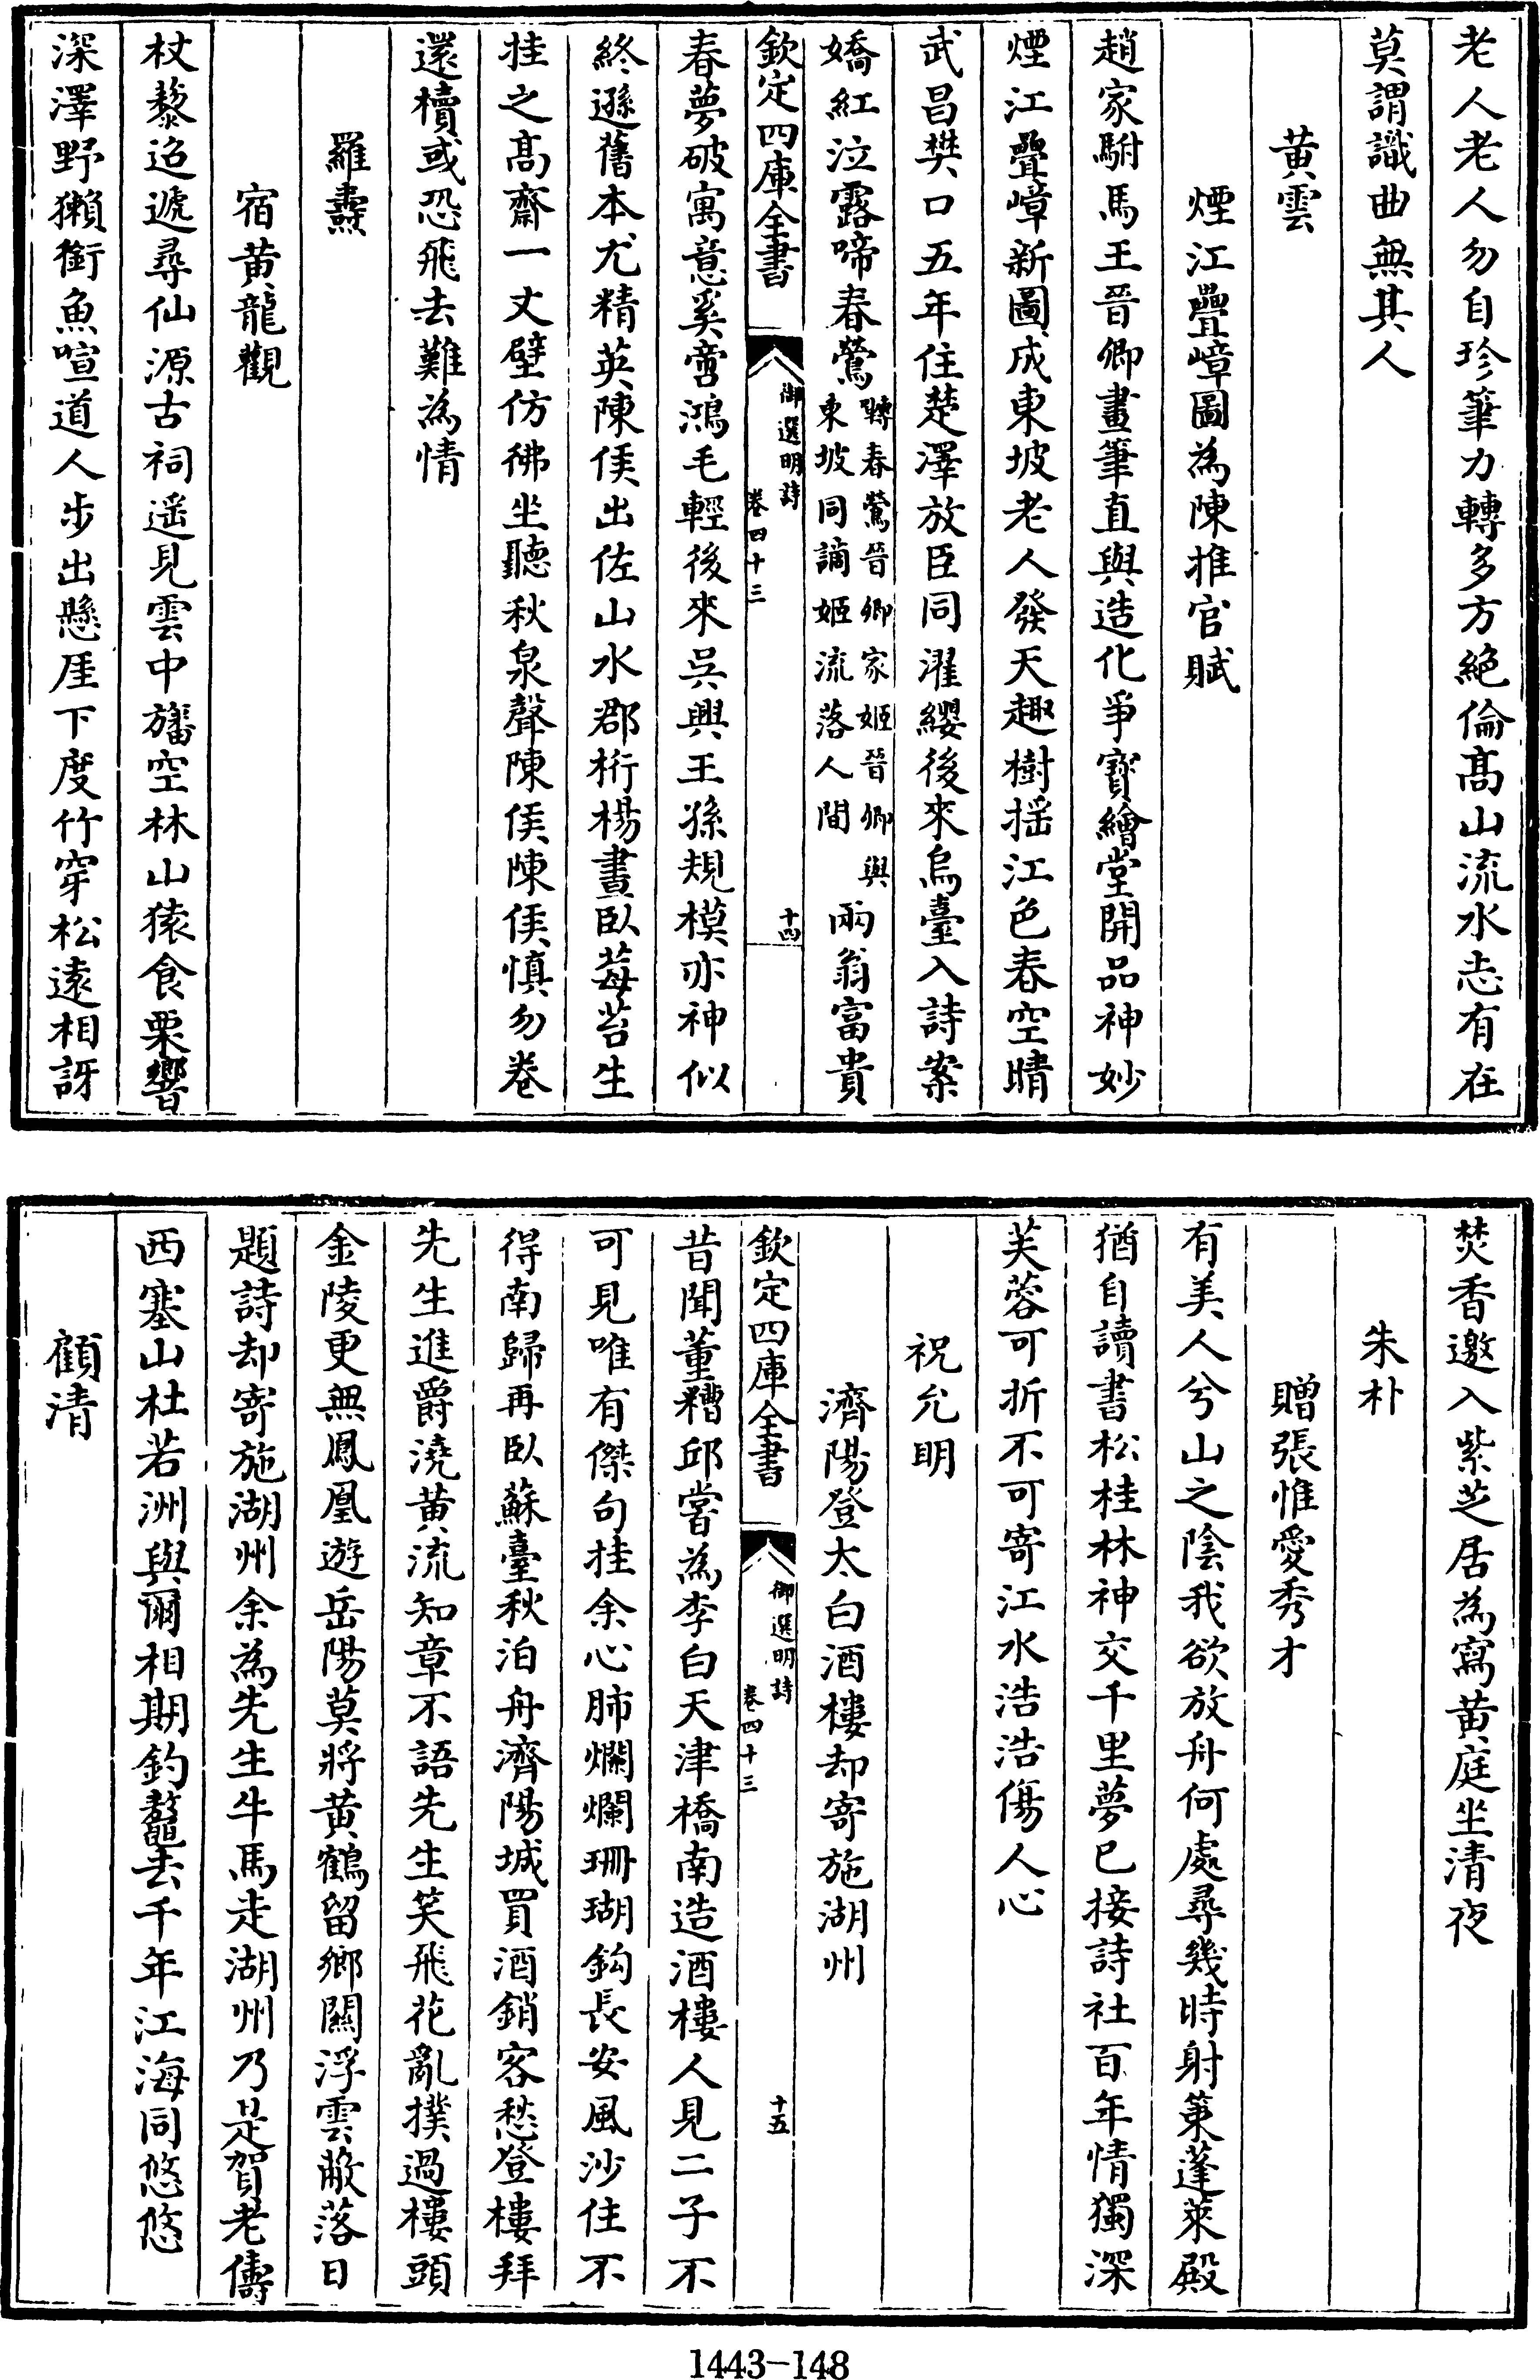 老人老人勿自珍筆力轉多方絶倫髙山流水志有在
莫謂識曲無其人
黄雲
煙江疊嶂圖為陳推官賦
趙家駙馬王晉卿畫筆直與造化爭寳繪堂開品神妙
煙江疊嶂新圖成東坡老人發天趣樹揺江色春空晴
武昌樊口五年住楚澤放臣同濯纓後來烏臺入詩案
嬌紅泣露啼春鶯囀春鶯晉卿家姬晉卿與東坡同謫姬流落人間兩翁富貴
欽定四庫全書
御選明詩
卷四十三
十四
春夢破寓意奚啻鴻毛輕後來吳興王孫規模亦神似
終遜舊本尤精英陳侯出佐山水郡桁楊晝臥莓苔生
挂之髙齋一丈壁仿彿坐聽秋泉聲陳侯陳侯慎勿卷
還櫝或恐飛去難為情
羅燾
宿黄龍觀
杖藜迢遞尋仙源古祠遥見雲中旛空林山猿食栗響
深澤野獺銜魚喧道人步出懸厓下度竹穿松遠相訝
焚香邀入紫芝居為寫黄庭坐清夜
朱朴
贈張惟愛秀才
有美人兮山之陰我欲放舟何處尋幾時射策蓬萊殿
猶自讀書松桂林神交千里夢已接詩社百年情獨深
芙蓉可折不可寄江水浩浩傷人心
祝允明
濟陽登太白酒樓却寄施湖州
欽定四庫全書
御選明詩
卷四十三
十五
昔聞董糟邱嘗為李白天津橋南造酒樓人見二子不
可見唯有傑句挂余心肺爛爛珊瑚鈎長安風沙住不
得南歸再臥蘇臺秋泊舟濟陽城買酒銷客愁登樓拜
先生進爵澆黄流知章不語先生笑飛花亂撲過樓頭
金陵更無鳳凰遊岳陽莫將黄鶴留鄉關浮雲蔽落日
題詩却寄施湖州余為先生牛馬走湖州乃是賀老儔
西塞山杜若洲與爾相期釣鼇去千年江海同悠悠
顧清
1443-148